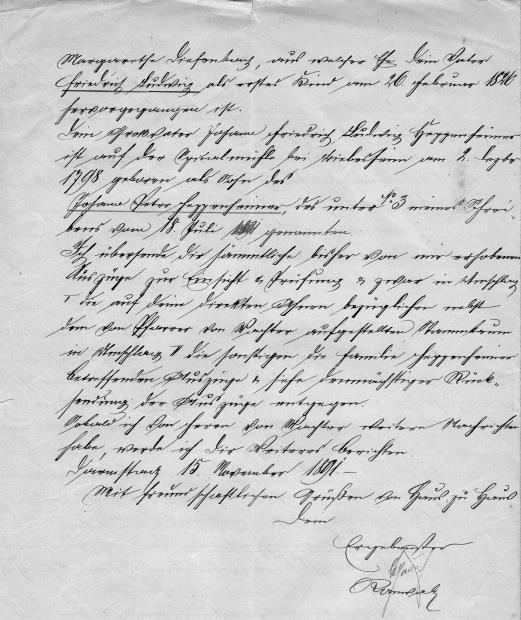 Margarethe Diefenbach, aus welcher Ehe Dein Vater
Friedrich Ludwig als erstes Kind am 26. Februar 1826
hervorgegangen ist.
Dein Großvater Johann Friedrich Ludwig Heppenheimer
ist auf der Spitalmühle bei am 2. Dezbr
1798 geboren als Sohn des
Johann Peter Heppenheimer, des unter No. 3 meines Schrei-
bens vom 18. Juli genannten.
Ich übersende dir sämmtliche bisher von mir erhobenen
Auszüge zur Einsicht & Prüfung & zwar in Umschlag
I die auf deine direkten Ahnen bezüglichen nebst
dem von Pfarrer von Wachter aufgestellten Stammbaum
in Umschlag II die sonstigen die Familie Heppenheimer
betreffenden Auszüge & sehe demnächstiger Rück-
sendung der Auszüge entgegen.
Sobald ich von Herrn von Wachter weitere Nachrichten
habe, werde ich Dir Weiteres berichten.
Darmstadt 15 November 1891.-
Mit freundschaftlichen Grüßen von Haus zu Haus
Dein
Ergebenster